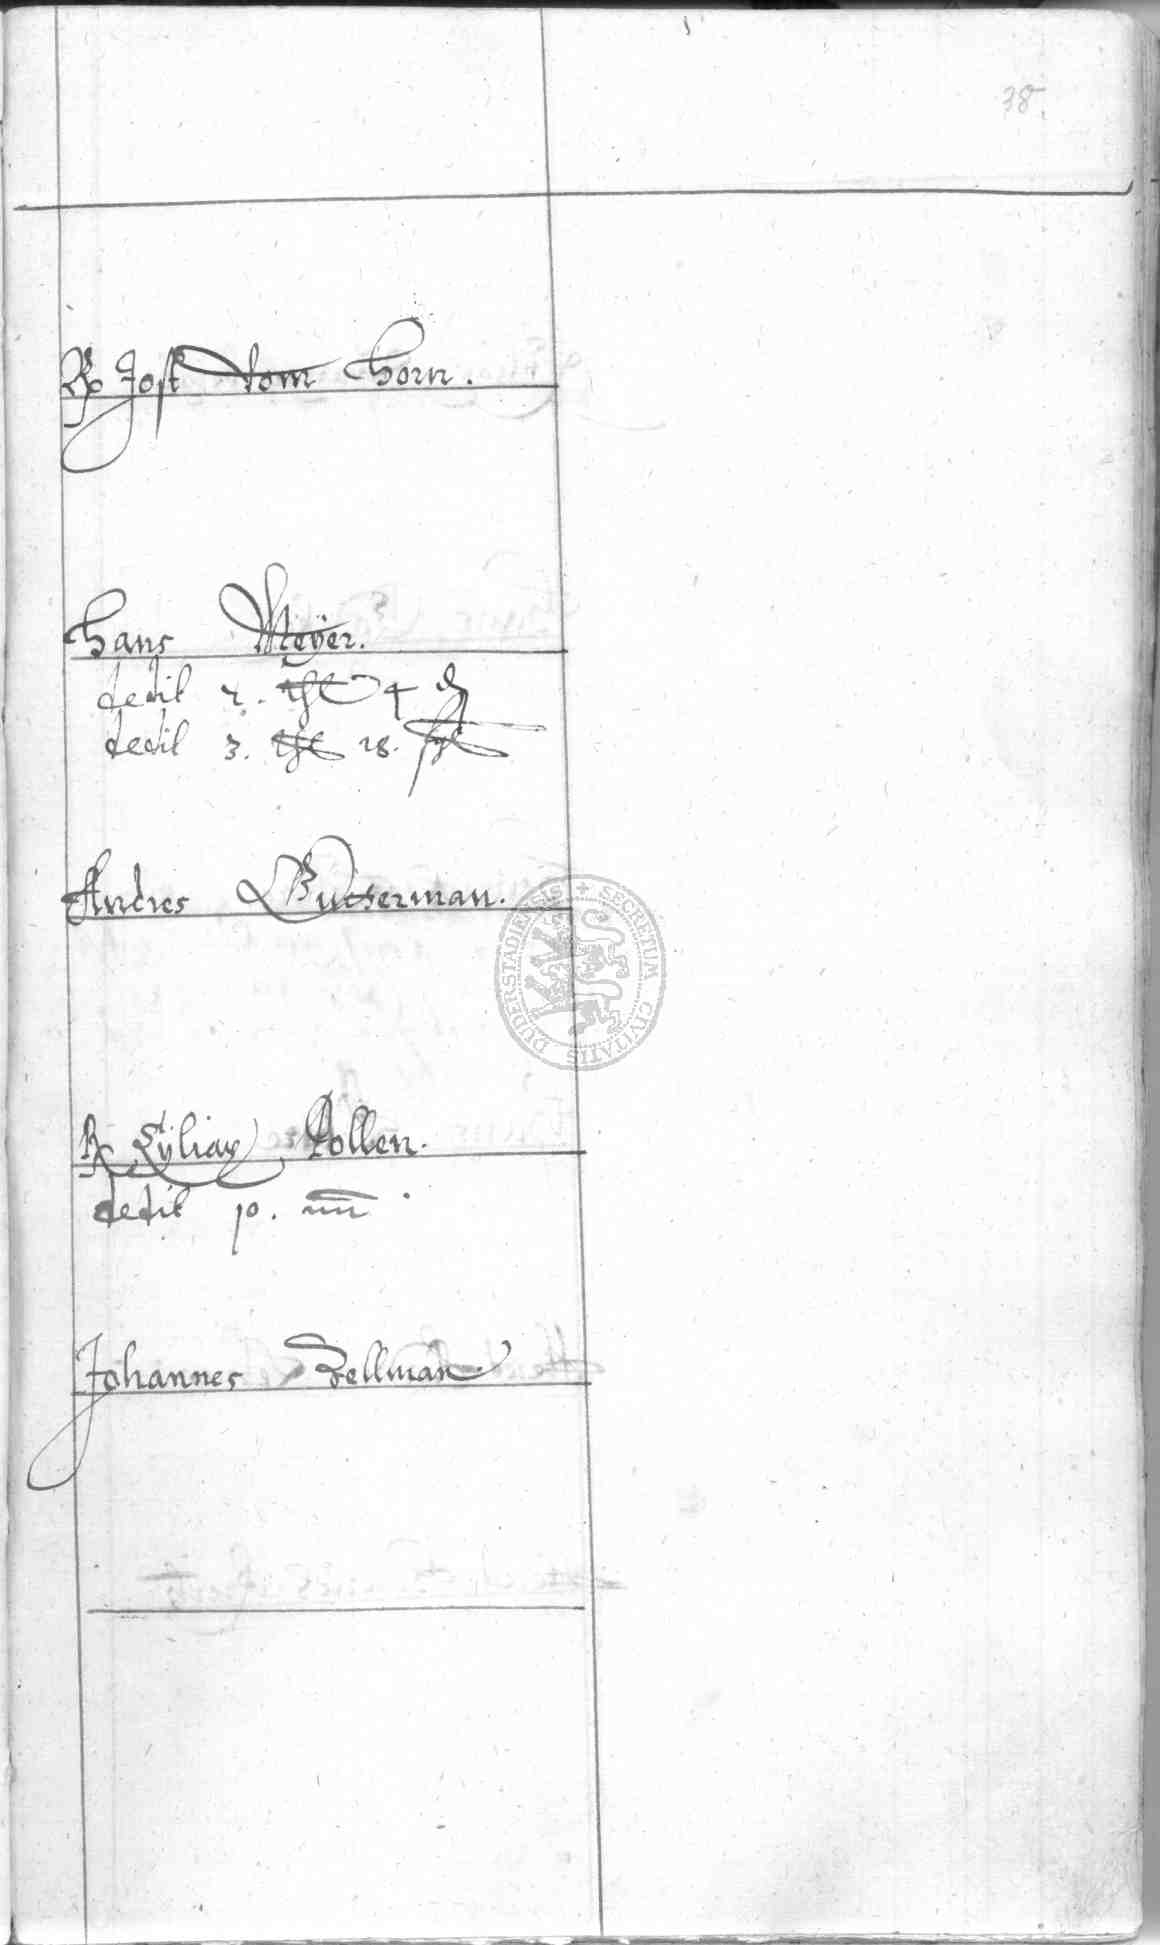 38.
Jost vom Horn.
Hans Meÿer.
dedit 2. thl 4 d
dedit 3. thl 18. ßl
Andres Bucterman.
Ciliax Pollen.
dedit 10.
Johannes Zellman
DUDERSTADIENSIS + SECRETUM CIVITATIS